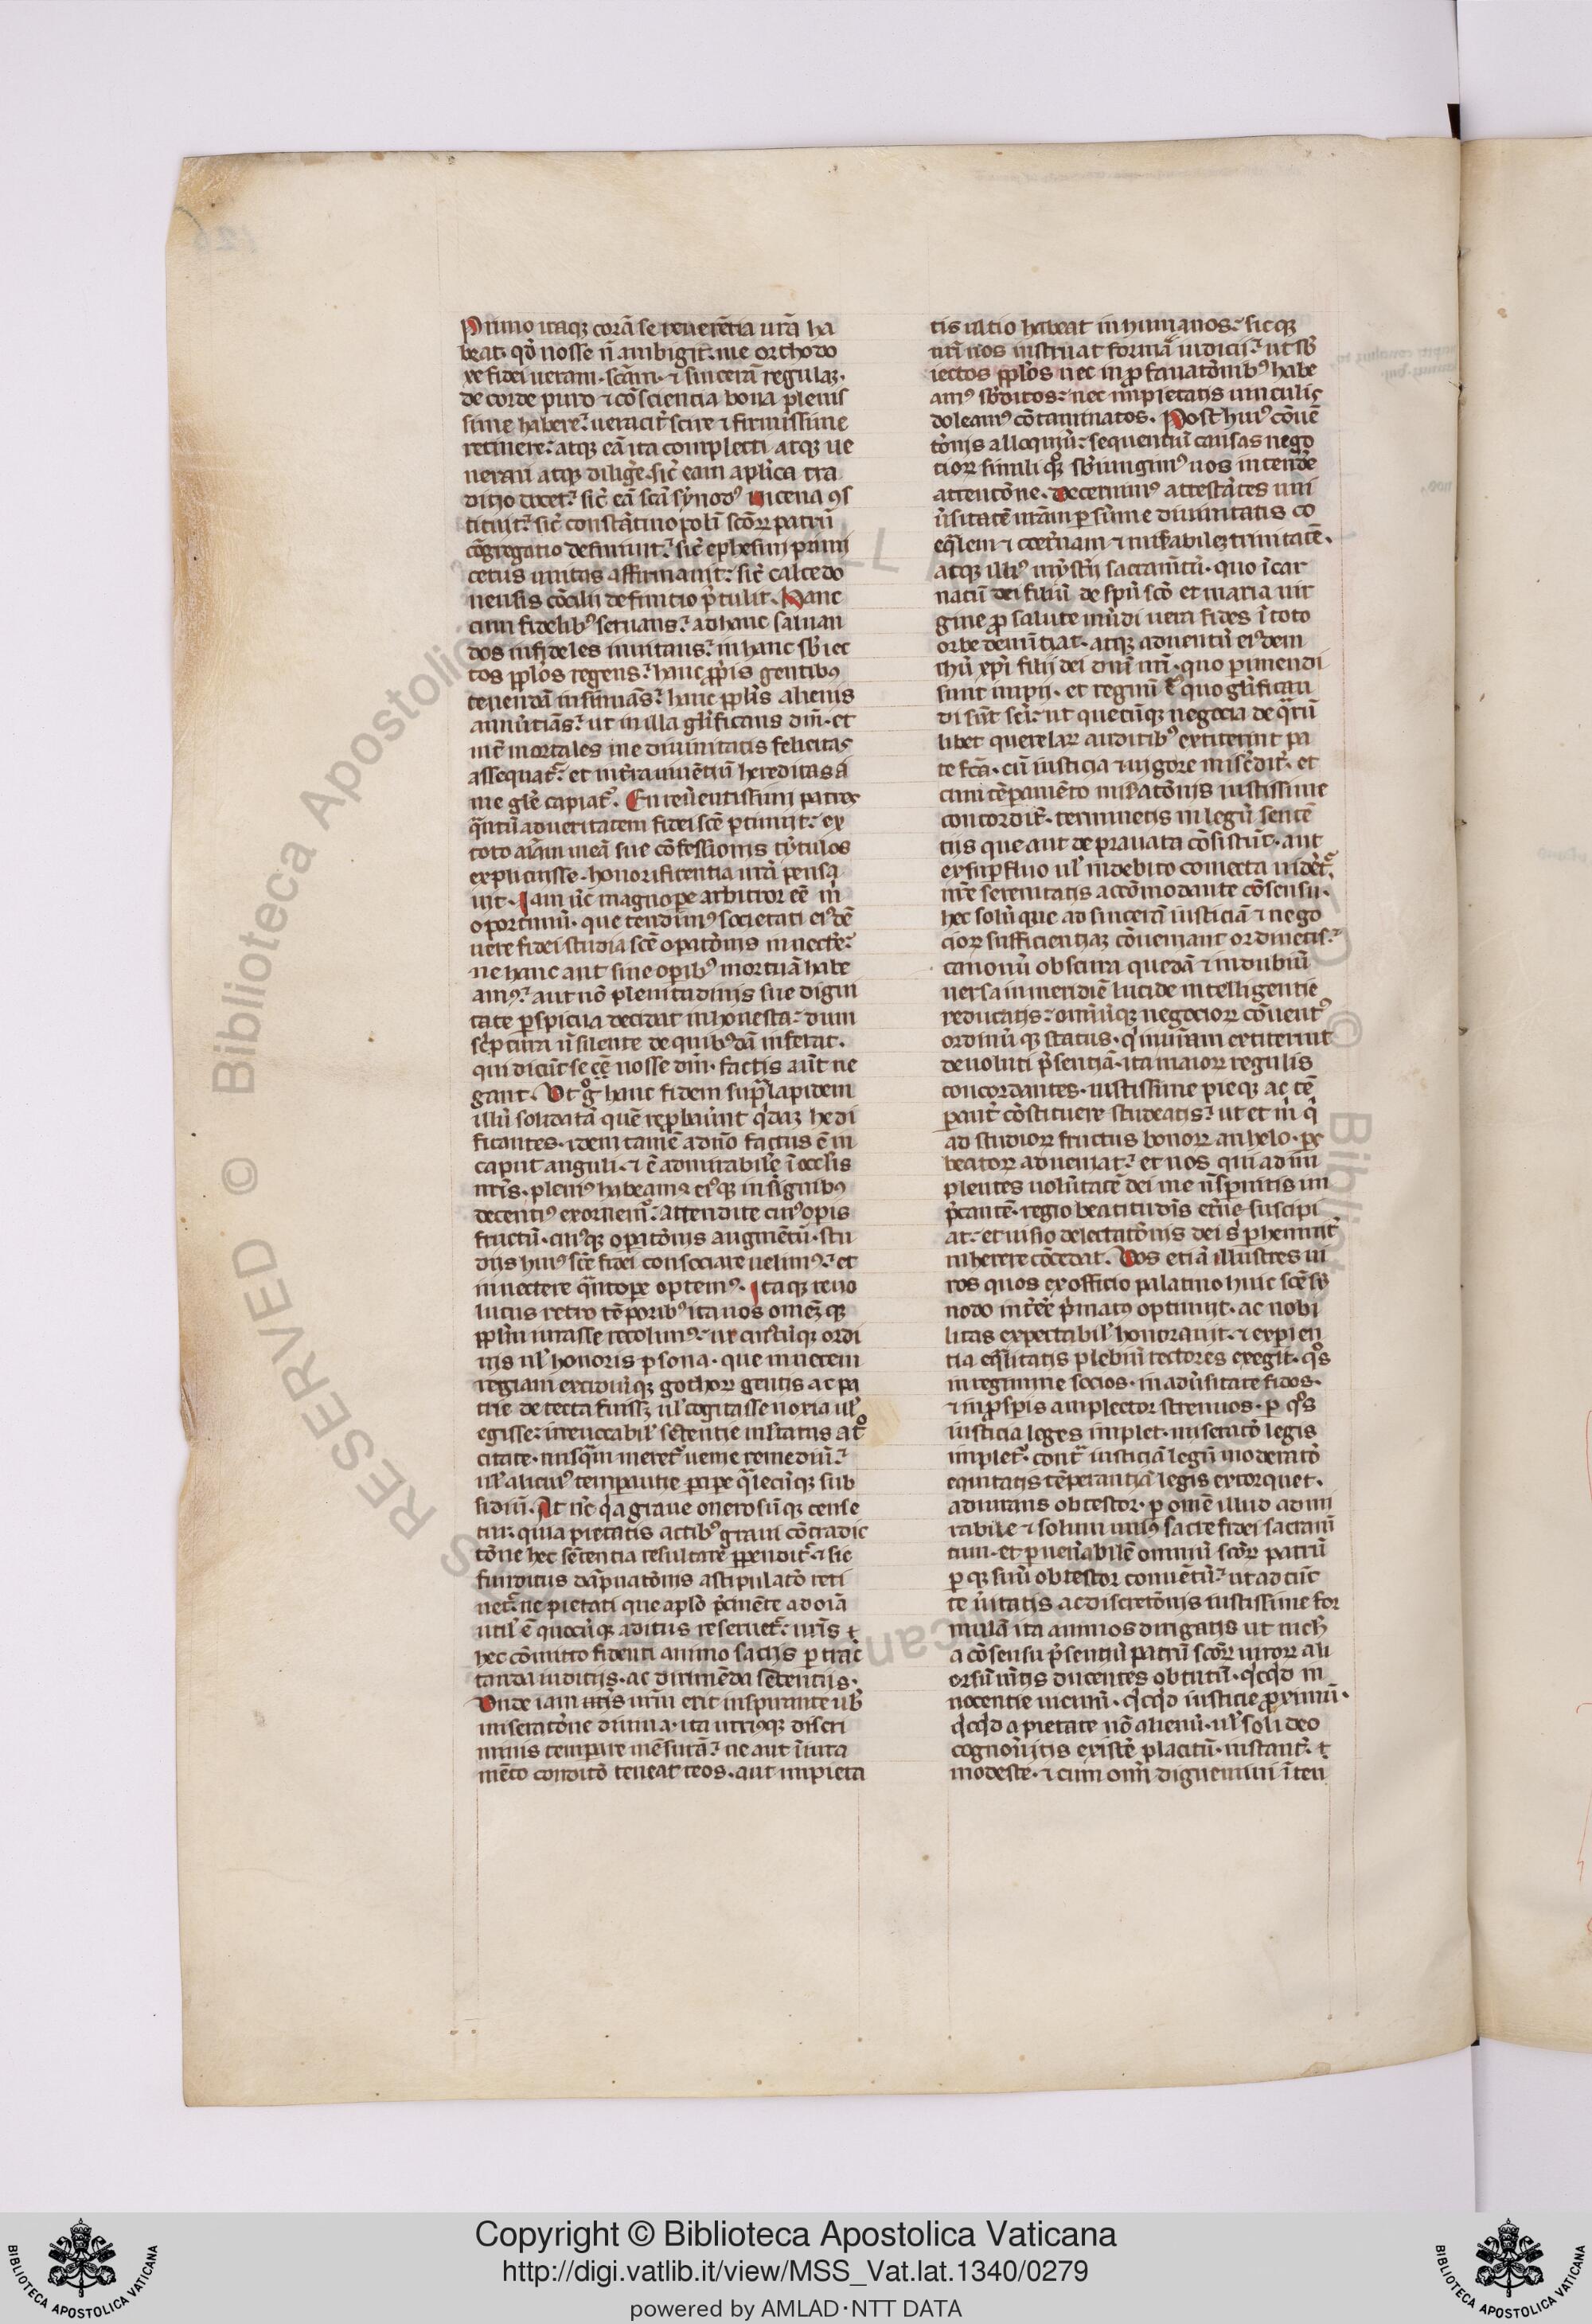 Primo itaqꝫ corã se reuerẽtia ur̃a ha
beat· qđ nosse ñ ambigit: me orthodo
xe fidei ueram· scãm· ⁊ sincerã regulaꝫ·
de corde puro ⁊ cõsciencia bona plenis
sime habere: ueracit̃ scire ⁊ firmissime
retinere: atqꝫ eã ita complecti atqꝫ ue
nerari atqꝫ diliget̃· sic̃ eam aplica tra
ditio docet: sic̃ eã scã synodꝰ nicena ꝯs
tituit: sic̃ constãtinopoli scõꝝ patrũ
cõgregatio definiuit: sic̃ ephesini primi
cetus unitas affirmauit: sic̃ calcedo
nensis cõcilii definitio p̃tulit· Hanc
cum fidelibꝰ seruans: ad hanc saluan
dos infideles inuitans: in hanc sb̃iec
tos pplos regens: hanc ꝓpris gentibus
tenendã insinuãs: hanc pplis alienis
annũtiãs: ut in illa glificans dñm· et
int̃ mortales me diuinitatis felicitas
assequat̃· et int̃ra uiuẽtiũ hereditas ã
me glẽ capiat̃· En reũentissimi patres
q̃ntũ ad ueritatem fidei scẽ ꝑtinuit: ex
toto aĩam meã sue cõfessionis tytulos
explicuisse· honorificentia ur̃a pensa
uit· Iam ñc magnopere arbitror eẽ m̃
oportunũ· que tendimꝰ societati eiꝰdẽ
uere fidei studia scẽ oꝑatõnis innectẽ:
ne hanc aut sine opibꝰ mortuã habe
amꝰ: aut nõ plenitudinis sue digni
tate ꝑspicua decidat inhonesta: dum
sc̃ptura ñ silente de quibꝰdã inferat·
qui dicũt se eẽ nosse dñm· factis aũt ne
gant· Ut g̊ hanc fidem supra lapidem
illũ solidatã quẽ reꝓbauert q̃daꝫ hedi
ficantes· idem tamẽ a dño factus ẽ in
caput anguli· ⁊ ẽ admirabile ĩ oculis
nr̃is· pleniꝰ habeamꝰ eiꝰqꝫ insignibus
decentiꝰ exornemꝰ: Attendite cuiꝰ opis
fructũ· cuiꝰqꝫ oꝑatõnis augmẽtũ· stu
diis huiꝰ scẽ fidei consociare uelimꝰ: et
innectere q̃ntope optemꝰ· Itaqꝫ reuo
lutis retro tẽporibꝰ ita uos omẽꝫqꝫ
ppl̃m iurasse recolimꝰ: ut cuiꝰcũqꝫ ordi
nis ul̃ honoris ꝑsona· que in necem
regiam excidiũqꝫ gothoꝝ gentis ac pa
trie detecta fuissꝫ ul̃ cogitasse noxia ul̃
egisse: irreuocabil̃ sẽtentie instatus at̃o
citate· nusq̃m meret̃ uenie remediũ:
ul̃ alicuiꝰ temꝑantie ꝑcipe q̃lecũqꝫ sub
sidiũ· At ñc q̃a graue onerosũqꝫ cense
tur· quia pietatis actibꝰ graui cõtradic
tõne hec sẽtencia resultare ꝑpendit̃· ⁊ sic
funditus dãpnatõnis astipulatõ reti
net̃· ne pietati que aplo p̃cinẽte ad oĩa
util̃ ẽ quocũqꝫ aditus reseruet̃: ur̃is ⁊
hec cõmitto fidenti animo satis ꝑtrac̃
tanda iudiciis· ac dirimẽda sẽtentiis·
Unde iam ar̃is ur̃m erit inspirante ub̃
miseratõne diuina· ita utriꝰqꝫ discri
minis temꝑare mẽsurã: ne aut ĩ iura
mẽto conditõ teneat reos· aut impieta
tis ultio habeat inhumanos: sicqꝫ
nr̃i uos instruat formã iudicii: ut sb̃
iectos pplos nec in ꝓfanatõnibꝰ habe
amꝰ sb̃ditos: nec impietatis uinculis
doleamꝰ cõtaminatos· Post huiꝰ cõuẽ
tõnis alloqiuũ: sequentiũ causas nego
tioꝝ simili qꝫ sb̃iungimꝰ uos intendẽ
attentõne· Decernimꝰ attestãtes uni
ũsitatẽ ur̃am ꝑ sũme diuinitatis co
eq̃lem ⁊ coetr̃nam ⁊ inseꝑabileꝫ trinitatẽ·
atqꝫ illiꝰ mysterii sacramẽtũ· quo ĩcar
natũ dei filiũ de spũ scõ et maria uir
gine ꝓ salute mũdi uera fides ĩ toto
orbe denũtiat· atqꝫ aduentũ eiꝰdem
ihũ xpĩ filii dei dñi nr̃i· quo ꝑimendi
sunt impii· et regnũ ĩ quo glificati
di sũt scĩ: ut quecũqꝫ negocia de q̃rũ
libet querelaꝝ auditibꝰ extiterint pa
te fcã· cũ iusticia ⁊ uigore miscẽdit̃· et
cum tẽꝑamẽto miseratõnis iustissime
concordit̃· terminetis in legũ sentẽ
tiis que aut deprauata cõsistũt· aut
ex suꝑfluo ul̃ indebito coniecta uidẽt̃·
nr̃e serenitatis accõmodante cõsensu·
hec solũque ad sincerã iusticiã ⁊ nego
cioꝝ sufficientiaꝫ cõueniant ordinetis:
canonũ obscura quedã ⁊ in dubiũ
uersa in meridiẽ lucide intelligentie
reducatis: omniũqꝫ negocioꝝ cõuentꝰ
ordinũqꝫ status· qi nur̃am extiterint
deuoluti p̃sentiã· ita maioꝝ regulis
concordantes· iustissime pieqꝫ ac tẽ
ꝑant̃ cõstituere studeatis: ut et m̃ q̃
ad studioꝝ fructus bonoꝝ anhelo· pe
beatoꝝ adueniat: et uos qui adim
plentes uolũtatẽ dei me ñ spnitis im
p̃cantẽ· regio beatitudĩs etr̃ne suscipi
at: et uisio delectatõnis dei sẽphennit̃
inherere cõcedat· Uos etiã illustres ui
ros quos ex officio palatino huic scẽ sy
nodo int̃eẽ p̃matꝰ optinuit· ac nobi
litas expectabil̃ honorauit· ⁊ experien
tia eq̃litatis plebiũ rectores exegit· q̊s
in regimine socios· in adũsitate fidos·
⁊ in ꝓspis amplector strenuos· ꝑ q̊s
iusticia leges implet· miseratõ legis
implet̃· contr̃ iusticiã legũ moderatõ
equitatis tẽperantiã legis extorquet·
adiurans obtestor· ꝑ omẽ illud admi
rabile ⁊ solum unius sacre fidei sacram̃
tum· et ꝑ uenẽabilẽ omniũ scõꝝ patrũ
ꝑqꝫ suũ obtestor conuẽtũ: ut ad cũc̃
te ũitatis ac discretõnis iustissime for
mulã ita animos dirigatis ut nich̃
a cõsensu p̃sentiũ patrũ scõꝝ uiroꝝ ali
orsũ mẽtis ducentes obtutũ· q̃cqd in
nocentie uicinũ· q̃cqd iusticie ꝓximũ·
q̃cqd a pietate nõ alienũ· ul̃ soli deo
cognoũitis existẽ placitũ· instant̃· ⁊
modeste· ⁊ cum omĩ dignemini ĩten
Copyright © Biblioteca Apostolica Vaticana
http://digi.vatlib.it/view/MSS_Vat.lat.1340/0279
powered by AMLAD·NTT DATA